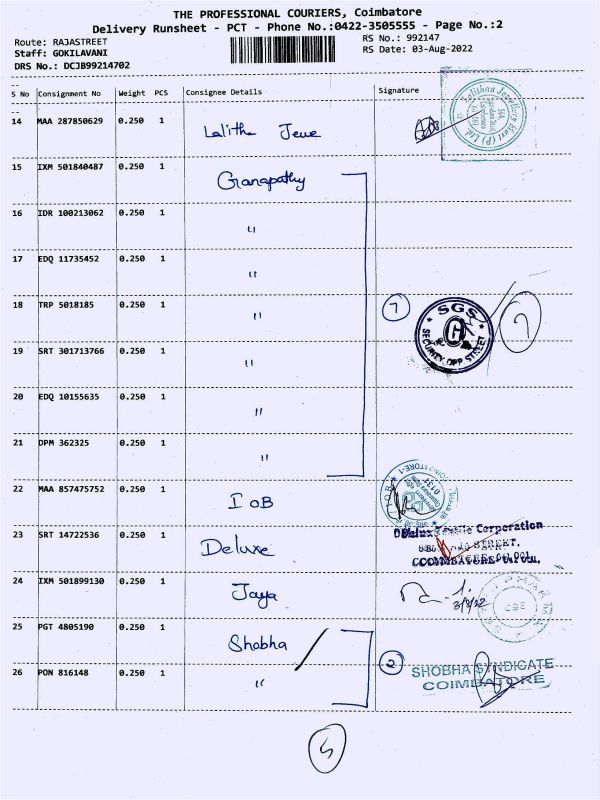 THE PROFESSIONAL COURIERS, Coimbatore
Delivery Runsheet - PCT - Phone No.:0422-3505555 - Page No.:2
Route: RAJASTREET RS No.: 992147
Staff: GOKILAVANI RS Date: 03-Aug-2022
DRS No.: DCJB99214702
S No Consignment No Weight PCS Consignee Details Signature
14 MAA 287850629 0.250 1 Lalitha Jewe
15 IXM 501840487 0.250 1 Ganapathy
16 IDR 100213062 0.250 1 "
17 EDQ 11735452 0.250 1 "
18 TRP 5018185 0.250 1 " 7 SGS SECURITY OPP STREET 7
19 SRT 301713766 0.250 1 "
20 EDQ 10155635 0.250 1 "
21 DPM 362325 0.250 1 "
22 MAA 857475752 0.250 1 IOB
23 SRT 14722536 0.250 1 Deluxe Corporation
STREET,
COIMBATORE
24 IXM 501899130 0.250 1 Jaya 3/8/22
25 PGT 4805190 0.250 1 Shobha 2 SHOBHA SYNDICATE
COIMBATORE
26 PON 816148 0.250 1 "
5